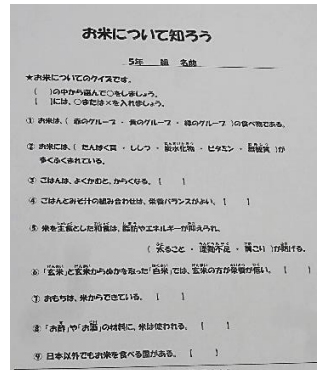 お米について知ろう
5年 組 名前
★お米についてのクイズです。
( )の中から選んで○をしましょう。
[ ]には、○または×を入れましょう。
① お米は、( 赤のグループ ・ 黄のグループ ・ 緑のグループ )の食べ物である。
② お米には、( たんぱく質 ・ ししつ ・ 炭水化物 ・ ビタミン ・ 無機質 )が
多くふくまれている。
③ ごはんは、よくかむと、からくなる。 [ ]
④ ごはんとみそ汁の組み合わせは、栄養バランスがよい。 [ ]
⑤ 米を主食とした和食は、脂肪やエネルギーが抑えられ、
( 太ること ・ 運動不足 ・ 肩こり )が防げる。
⑥ 「玄米」と玄米からぬかを取った「白米」では、玄米の方が栄養が低い。 [ ]
⑦ おもちは、米からできている。 [ ]
⑧ 「お酢」や「お酒」の材料に、米は使われる。 [ ]
⑨ 日本以外でもお米を食べる国がある。 [ ]